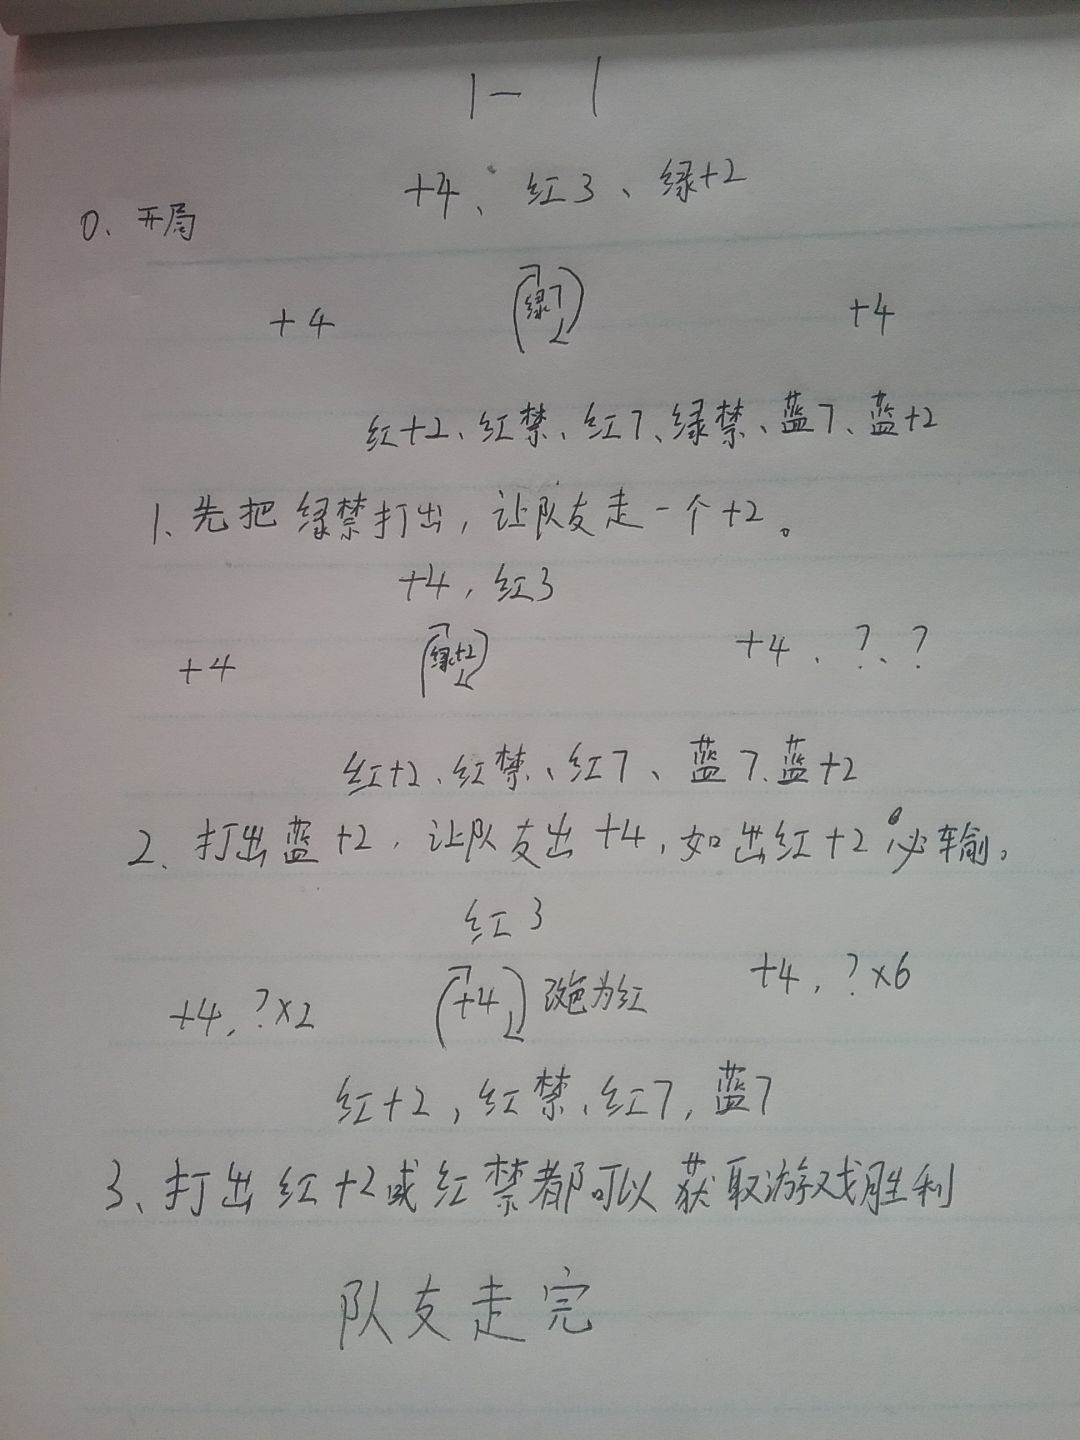 1-1
+4、红3、绿+2
0、开局
+4 绿7 +4
红+2、红禁、红7、绿禁、蓝7、蓝+2
1、先把绿禁打出，让队友走一个+2。
+4，红3
+4 绿+2 +4、?、?
红+2、红禁、红7、蓝7、蓝+2
2、打出蓝+2，让队友出+4，如出红+2必输。
红3
+4，?×2 +4 改色为红 +4，?×6
红+2，红禁、红7，蓝7
3、打出红+2或红禁都可以获取游戏胜利
队友走完